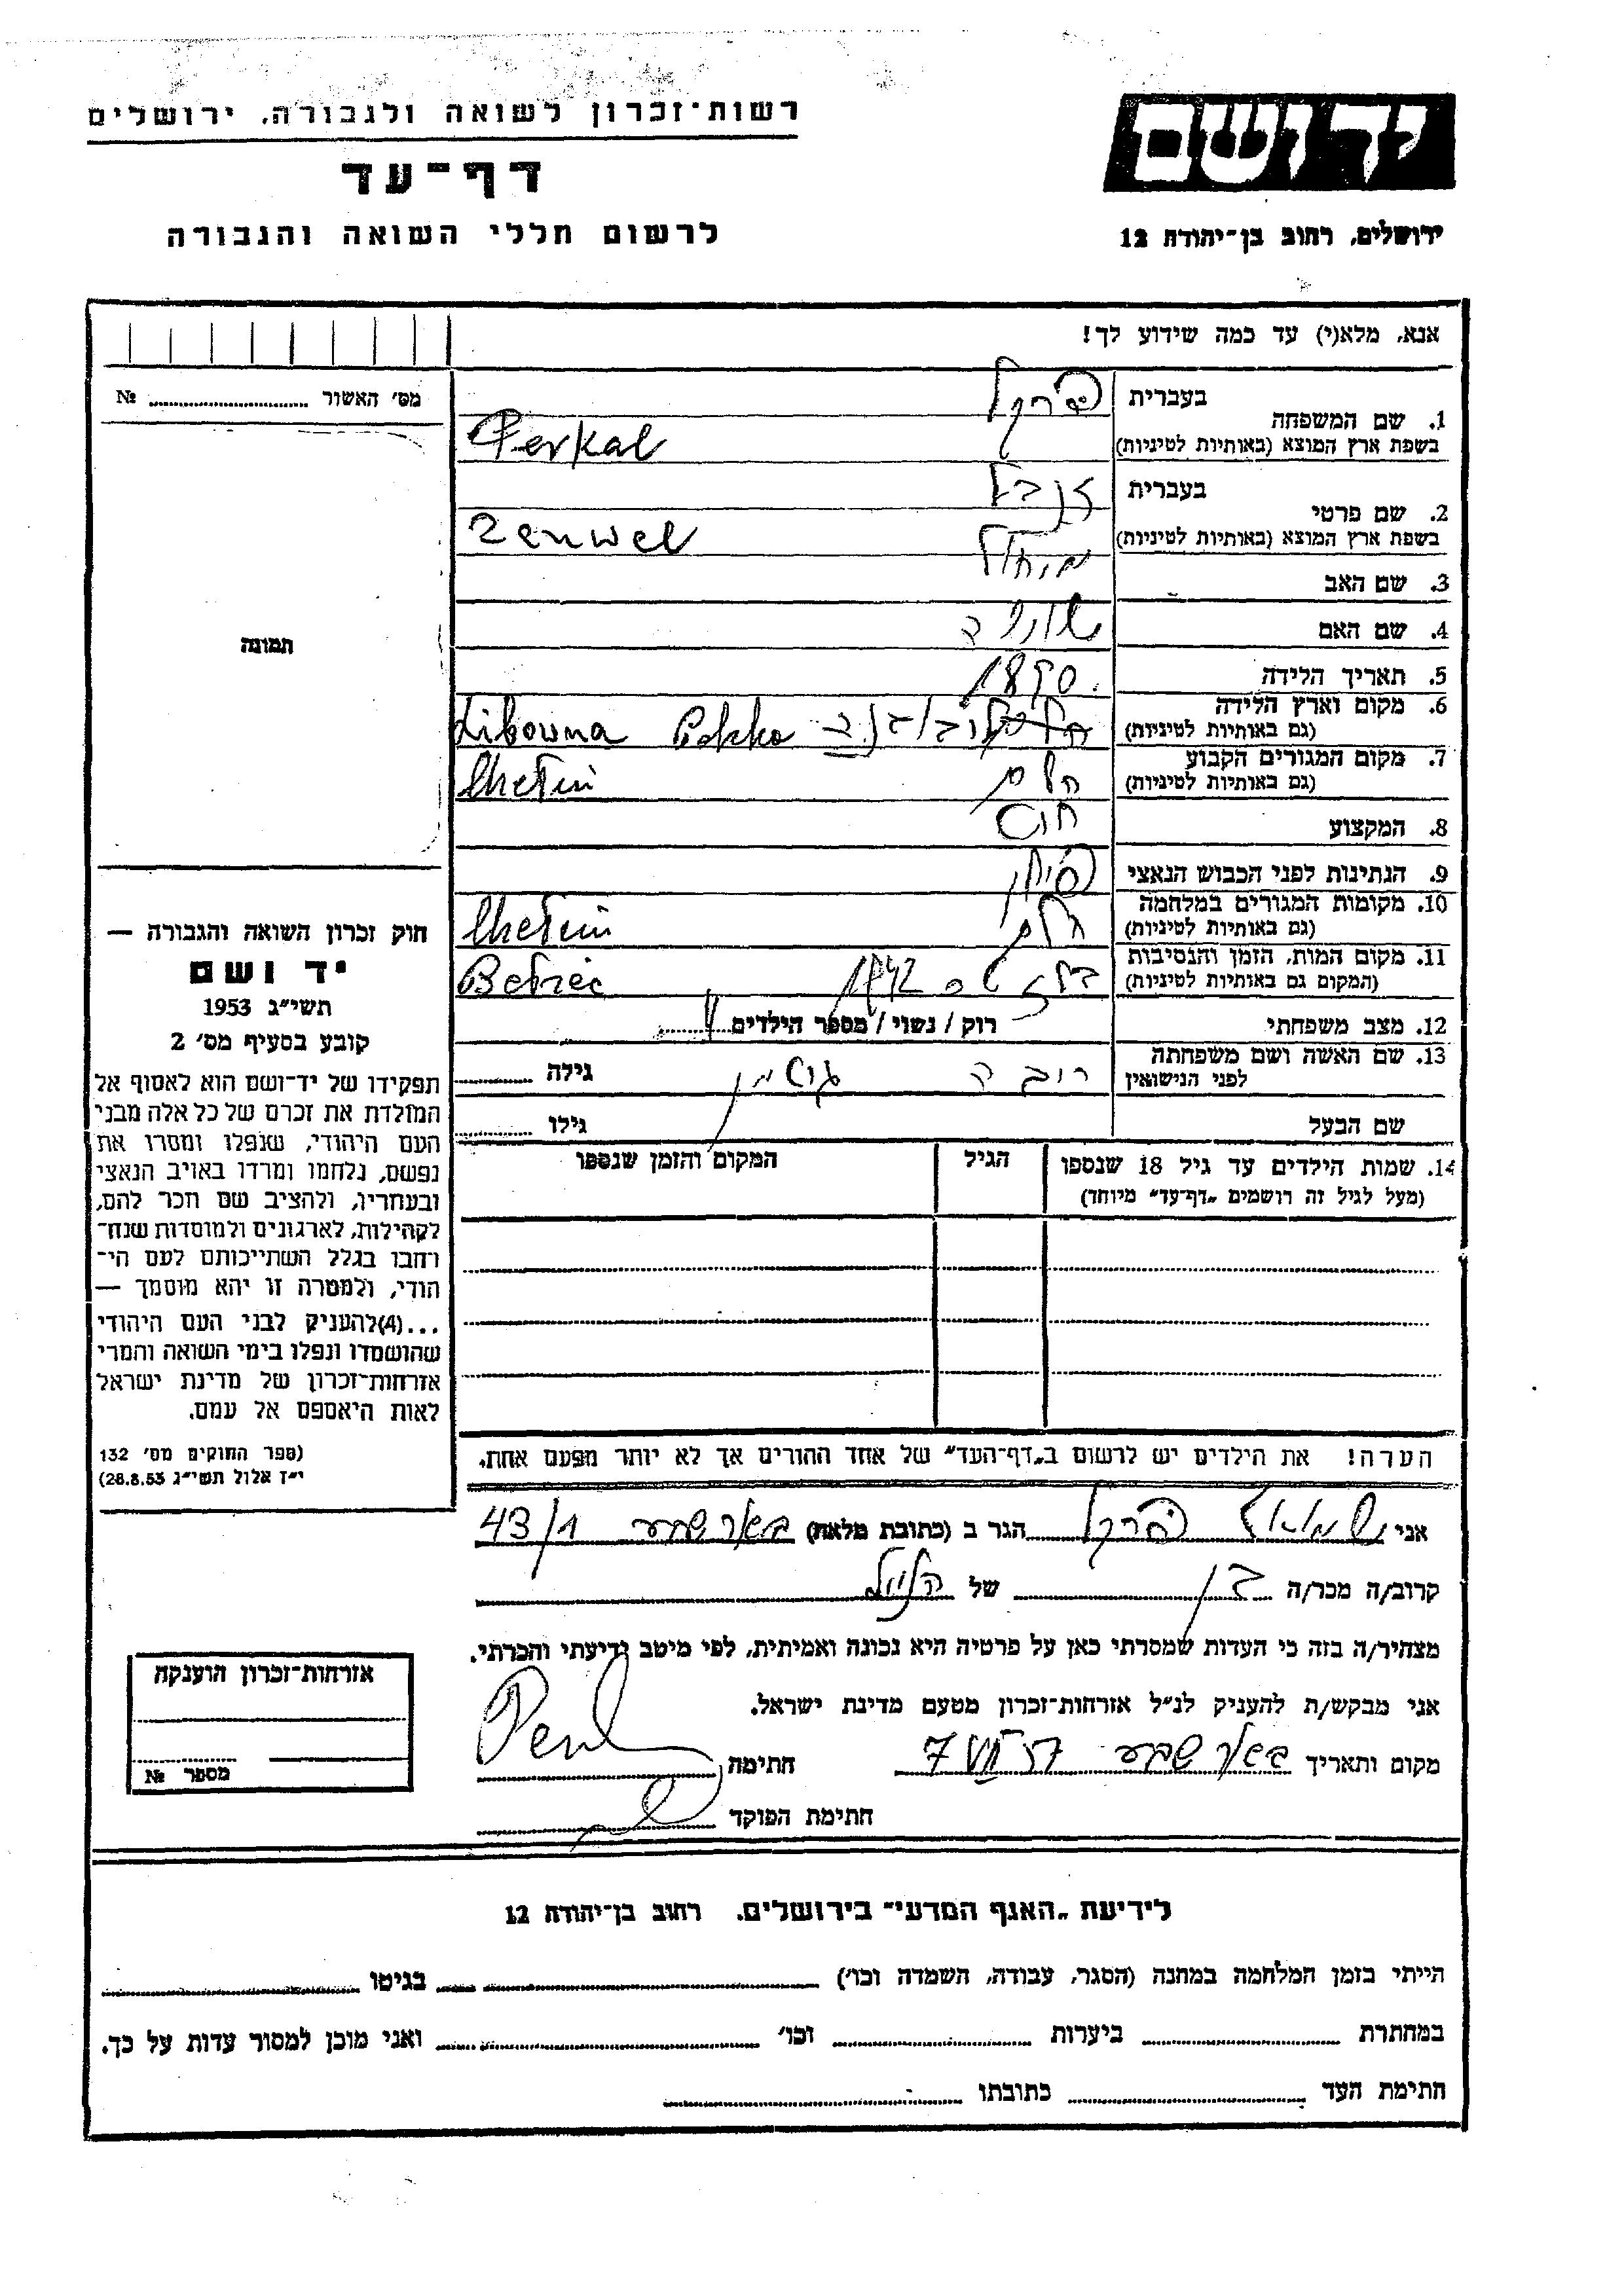 רשות־זכרון לשואה ולגבורה, ירושלים
דף־עד
לרשום חללי השואה והגבורה
יד ושם
ירושלים, רחוב בן־יהודה 12
אנא, מלא(י) עד כמה שידוע לך!
מס׳ האשור № ........
1. שם המשפחה בעברית פרקל
בשפת ארץ המוצא (באותיות לטיניות) Perkal
2. שם פרטי בעברית זנבל
בשפת ארץ המוצא (באותיות לטיניות) Zenwel
3. שם האב
4. שם האם
5. תאריך הלידה 1890
6. מקום וארץ הלידה
(גם באותיות לטיניות) Polska
7. מקום המגורים הקבוע חלם
(גם באותיות לטיניות) Chełm
8. המקצוע
9. הנתינות לפני הכבוש הנאצי
10. מקומות המגורים במלחמה חלם
(גם באותיות לטיניות) Chełm
11. מקום המות, הזמן והנסיבות 1942
(המקום גם באותיות לטיניות) Bełżec
12. מצב משפחתי רוק / נשוי / מספר הילדים
13. שם האשה ושם משפחתה
לפני הנישואין גילה ........
שם הבעל גילו ........
14. שמות הילדים עד גיל 18 שנספו הגיל המקום והזמן שנספו
(מעל לגיל זה רושמים „דף־עד״ מיוחד)
הערה! את הילדים יש לרשום ב„דף־העד״ של אחד ההורים אך לא יותר מפעם אחת.
תמונה
חוק זכרון השואה והגבורה —
יד ושם
תשי״ג 1953
קובע בסעיף מס׳ 2
תפקידו של יד־ושם הוא לאסוף אל
המולדת את זכרם של כל אלה מבני
העם היהודי, שנפלו ומסרו את
נפשם, נלחמו ומרדו באויב הנאצי
ובעוזריו, ולהציב שם וזכר להם,
לקהילות, לארגונים ולמוסדות שנח־
רחבו בגלל השתייכותם לעם הי־
הודי, ולמטרה זו יהא מוסמך —
...(4)להעניק לבני העם היהודי
שהושמדו ונפלו בימי השואה והמרי
אזרחות־זכרון של מדינת ישראל
לאות היאספם אל עמם.
(ספר החוקים מס׳ 132
י״ז אלול תשי״ג 28.8.53)
אני פרקל הגר ב (כתובת מלאה) באר שבע 43/1
קרוב/ה מכר/ה בן של
מצהיר/ה בזה כי העדות שמסרתי כאן על פרטיה היא נכונה ואמיתית, לפי מיטב ידיעתי והכרתי.
אני מבקש/ת להעניק לנ״ל אזרחות־זכרון מטעם מדינת ישראל.
מקום ותאריך באר שבע 7 VII 57 חתימה
חתימת הפוקד
אזרחות־זכרון הוענקה
מספר №
לידיעת „האגף המדעי״ בירושלים, רחוב בן־יהודה 12
הייתי בזמן המלחמה במחנה (הסגר, עבודה, השמדה וכו׳) ........ בגיטו ........
במחתרת ........ ביערות ........ וכו׳ ........ ואני מוכן למסור עדות על כך.
חתימת העד ........ כתובתו ........